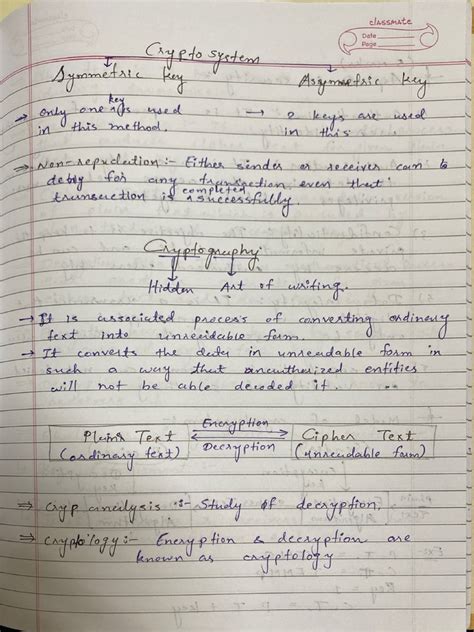 classmate
Date
Page
Crypto system
Symmetric key
Asymmetric key
→ Only one key is used
in this method.
→ 2 keys are used
in this
⇒ Non-repudation :- Either sender or receiver can
deny for any transaction even that
transaction is completed successfully.
Cryptography
Hidden Art of writing.
→ It is associated process of converting ordinary
text into unreadable form.
→ It converts the data in unreadable form in
such a way that unauthorized entities
will not be able decoded it.
Plain Text
(ordinary text)
Encryption
Decryption
Cipher Text
(unreadable form)
⇒ Cryp analysis :- Study of decryption.
⇒ Cryptology :- Encryption & decryption are
known as cryptology